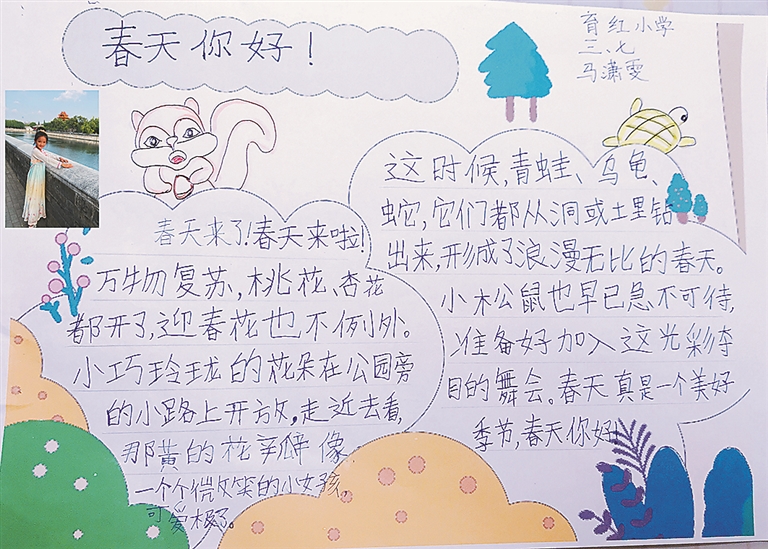 春天你好！
育红小学
三、七
马潇雯
春天来了！春天来啦！
万物复苏，桃花、杏花
都开了，迎春花也不例外。
小巧玲珑的花朵在公园旁
的小路上开放，走近去看，
那黄的花辛瓣像
一个个微笑的小女孩，
可爱极了。
这时候，青蛙、乌龟、
蛇，它们都从洞或土里钻
出来，形成了浪漫无比的春天。
小松鼠也早已急不可待，
准备好加入这光彩夺
目的舞会。春天真是一个美好
季节，春天你好！